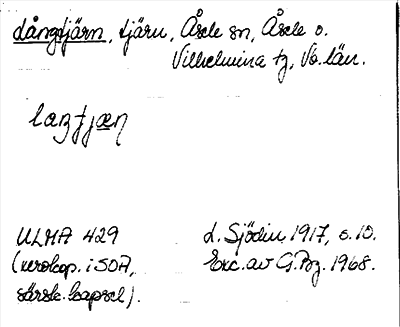 Långtjärn, tjärn, Åsele sn, Åsele o.
Vilhelmina tg, Vb. län.
laŋtjæɳ
ULMA 429
(xerokop. i SOA,
särsk. kapsel).
L. Sjödin 1917, s. 10.
Exc. av G. Pg. 1968.